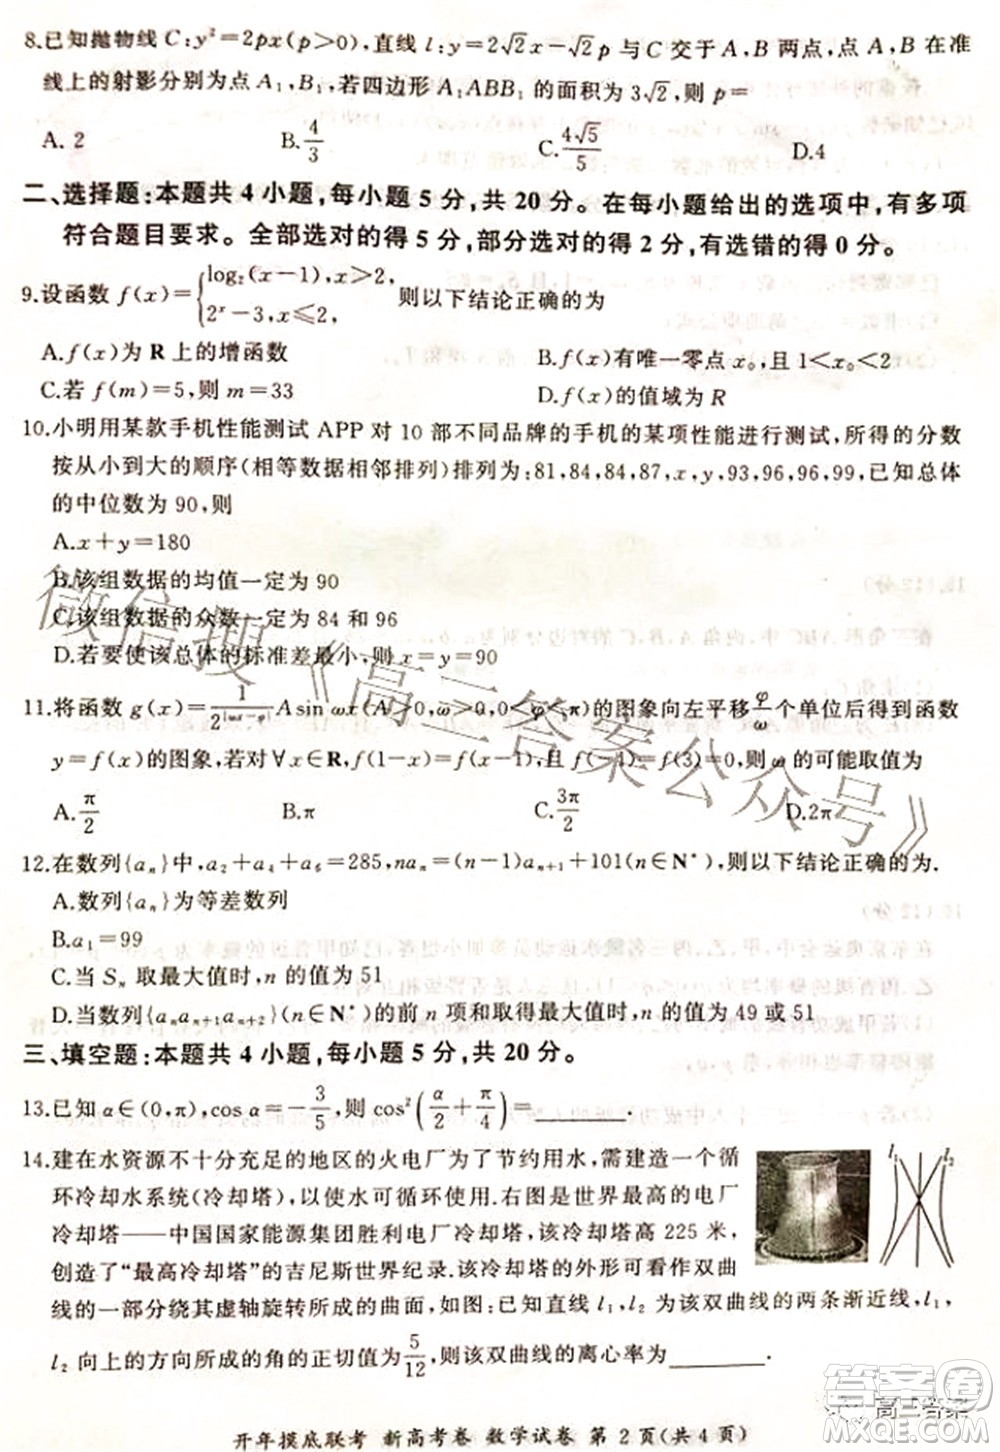 8.已知抛物线 C:y²=2px(p>0),直线 l:y=2√2x-√2p 与 C 交于 A,B 两点,点 A,B 在准
线上的射影分别为点 A₁,B₁,若四边形 A₁ABB₁ 的面积为 3√2,则 p=
A. 2 B. 4/3 C. 4√5/5 D.4
二、选择题:本题共 4 小题,每小题 5 分,共 20 分。在每小题给出的选项中,有多项
符合题目要求。全部选对的得 5 分,部分选对的得 2 分,有选错的得 0 分。
9.设函数 f(x)={log₂(x-1),x>2, 2ˣ-3,x≤2, 则以下结论正确的为
A.f(x)为 R 上的增函数 B.f(x)有唯一零点 x₀,且 1<x₀<2
C.若 f(m)=5,则 m=33 D.f(x)的值域为 R
10.小明用某款手机性能测试 APP 对 10 部不同品牌的手机的某项性能进行测试,所得的分数
按从小到大的顺序(相等数据相邻排列)排列为:81,84,84,87,x,y,93,96,96,99,已知总体
的中位数为 90,则
A.x+y=180
B.该组数据的均值一定为 90
C.该组数据的众数一定为 84 和 96
D.若要使该总体的标准差最小,则 x=y=90
11.将函数 g(x)= A sin ωx(A>0,ω>0,0<φ<π)的图象向左平移φ/ω个单位后得到函数
y=f(x)的图象,若对∀x∈R,f(1-x)=f(x-4),f(3)=0,则 ω 的可能取值为
A.π/2 B.π C.3π/2 D.2π
12.在数列{aₙ}中,a₂+a₄+a₆=285,naₙ=(n-1)aₙ₊₁+101(n∈N*),则以下结论正确的为.
A.数列{aₙ}为等差数列
B.a₁=99
C.当 Sₙ 取最大值时,n 的值为 51
D.当数列{aₙaₙ₊₁aₙ₊₂}(n∈N*)的前 n 项和取得最大值时,n 的值为 49 或 51
三、填空题:本题共 4 小题,每小题 5 分,共 20 分。
13.已知 α∈(0,π),cos α=-3/5,则 cos²(α/2+π/4)=________.
14.建在水资源不十分充足的地区的火电厂为了节约用水,需建造一个循
环冷却水系统(冷却塔),以使水可循环使用.右图是世界最高的电厂
冷却塔——中国国家能源集团胜利电厂冷却塔,该冷却塔高 225 米,
创造了“最高冷却塔”的吉尼斯世界纪录.该冷却塔的外形可看作双曲
线的一部分绕其虚轴旋转所成的曲面,如图:已知直线 l₁,l₂ 为该双曲线的两条渐近线,l₁,
l₂ 向上的方向所成的角的正切值为5/12,则该双曲线的离心率为________.
l₁ l₂
开年摸底联考 新高考卷 数学试卷 第 2 页(共 4 页)
微信搜《高三答案公众号》
答案圈
高三答案